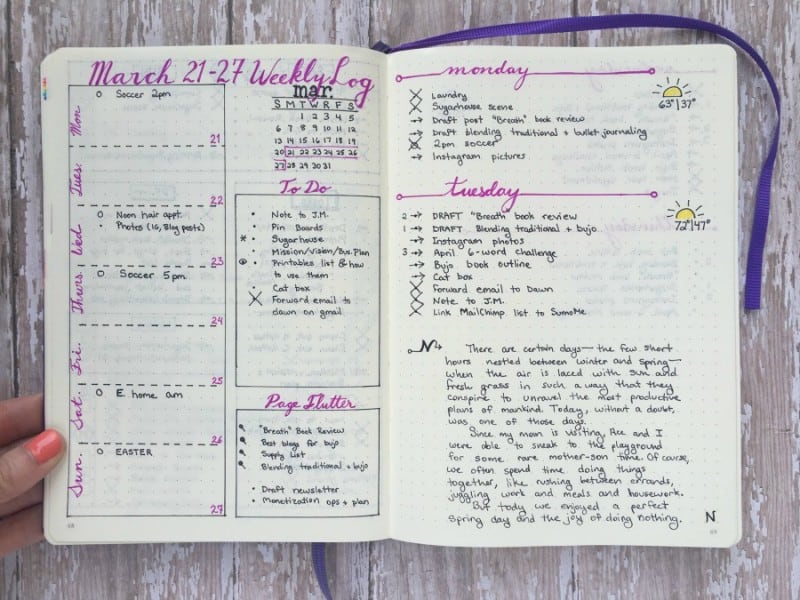 March 21-27 Weekly Log
Mon.
O Soccer 2pm
21
Tues.
22
Wed
O Noon hair appt.
• Photos (IG, Blog posts)
23
Thurs.
O Soccer 5pm
24
Fri.
25
Sat.
O E. home am
26
Sun.
O EASTER
27
mar.
S M T W R F S
1 2 3 4 5
6 7 8 9 10 11 12
13 14 15 16 17 18 19
20 21 22 23 24 25 26
27 28 29 30 31
To Do
• Note to J.M.
• Pin Boards
* • Sugarhouse
• Mission/Vision/Bus. Plan
• Printables list & how
to use them
• Cat box
X Forward email to
dawn on gmail
Page Flutter
"Breath" Book Review
Best blogs for bujo
Supply List
Blending traditional + bujo
• Draft newsletter
• Monetization ops + plan
68
monday
63° 37°
X Laundry
X Sugarhouse scene
→ Draft post "Breath" book review
→ Draft blending traditional + bullet journaling
X 2pm soccer
→ Instagram pictures
tuesday
72° 47°
2 → DRAFT "Breath" book review
1 → DRAFT Blending traditional + bujo
→ Instagram photos
3 → April 6-word challenge
→ Bujo book outline
→ Cat box
X Forward email to Dawn
X Note to J.M.
X Link MailChimp list to SumoMe
N→ There are certain days—the few short
hours nestled between winter and spring—
when the air is laced with sun and
fresh grass in such a way that they
conspire to unravel the most productive
plans of mankind. Today, without a doubt,
was one of those days.
Since my mom is visiting, Ace and I
were able to sneak to the playground
for some rare mother-son time. Of course,
we often spend time doing things
together, like rushing between errands,
juggling work and meals and housework.
But tody we enjoyed a perfect
Spring day and the joy of doing nothing.
N
69